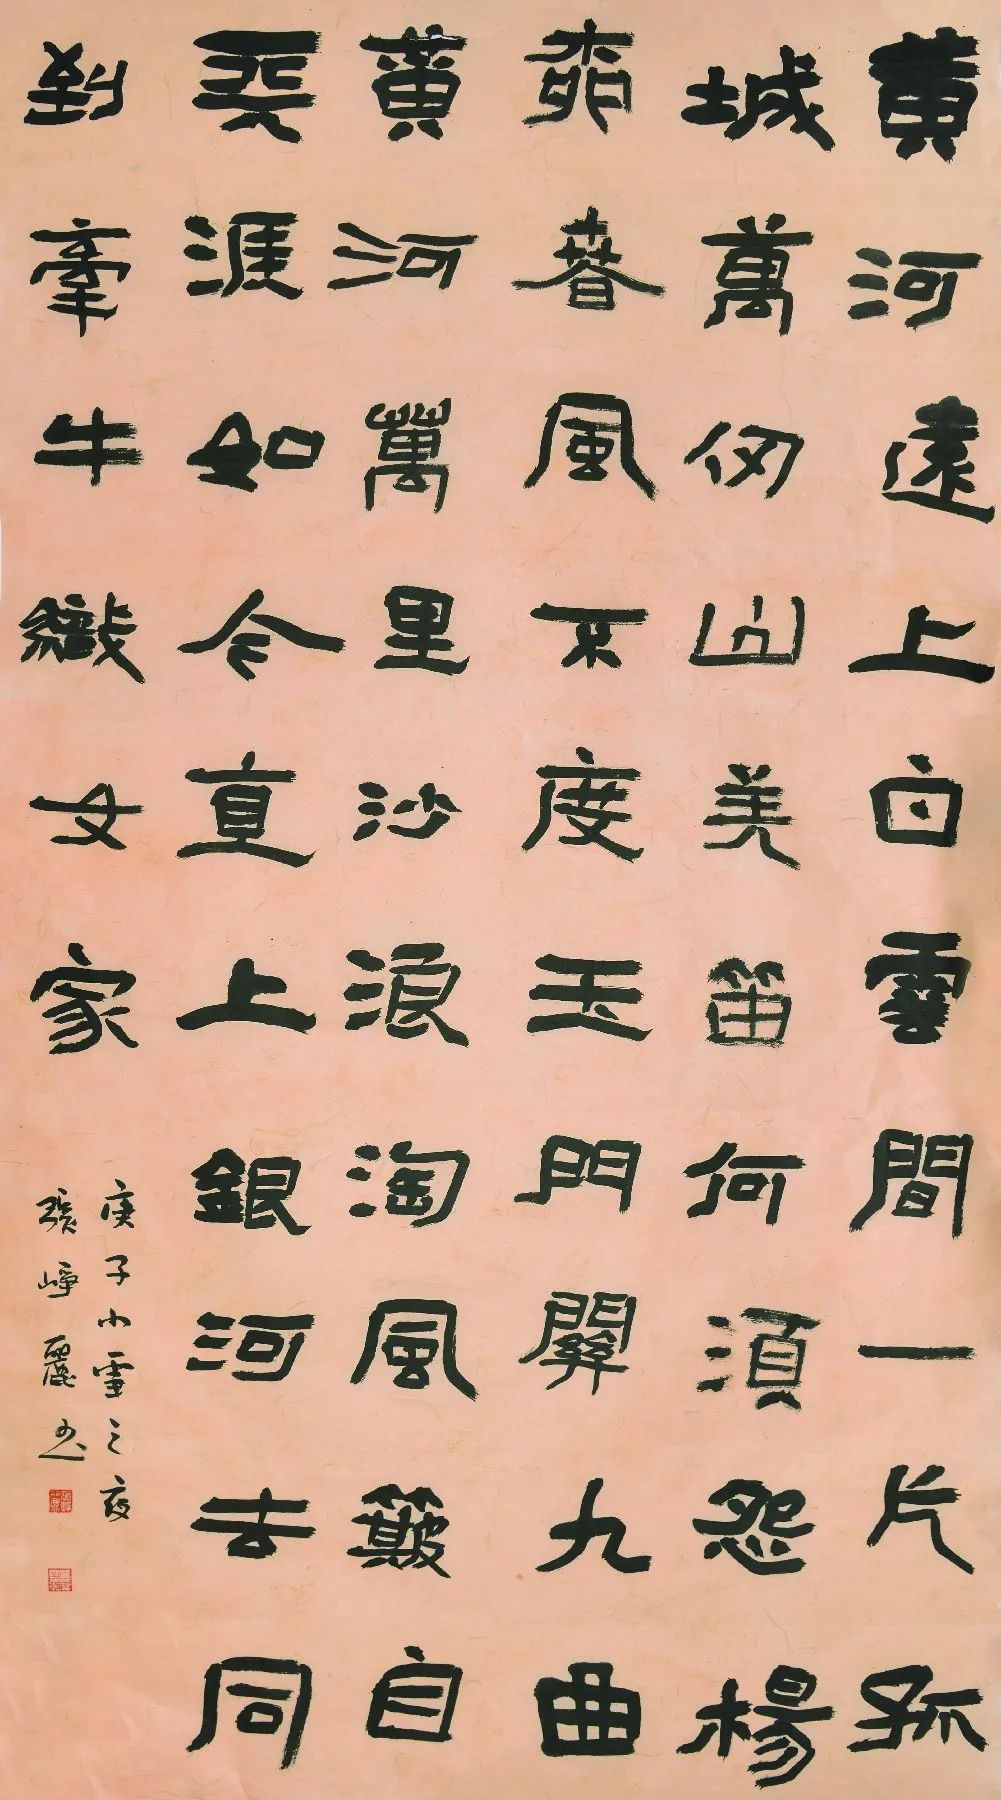 黄河遠上白雲間一片孤
城萬仞山羌笛何須怨楊
柳春風不度玉門關九曲
黄河萬里沙浪淘風簸自
天涯如今直上銀河去同
到牽牛織女家
庚子小雪之夜
張崢麗书